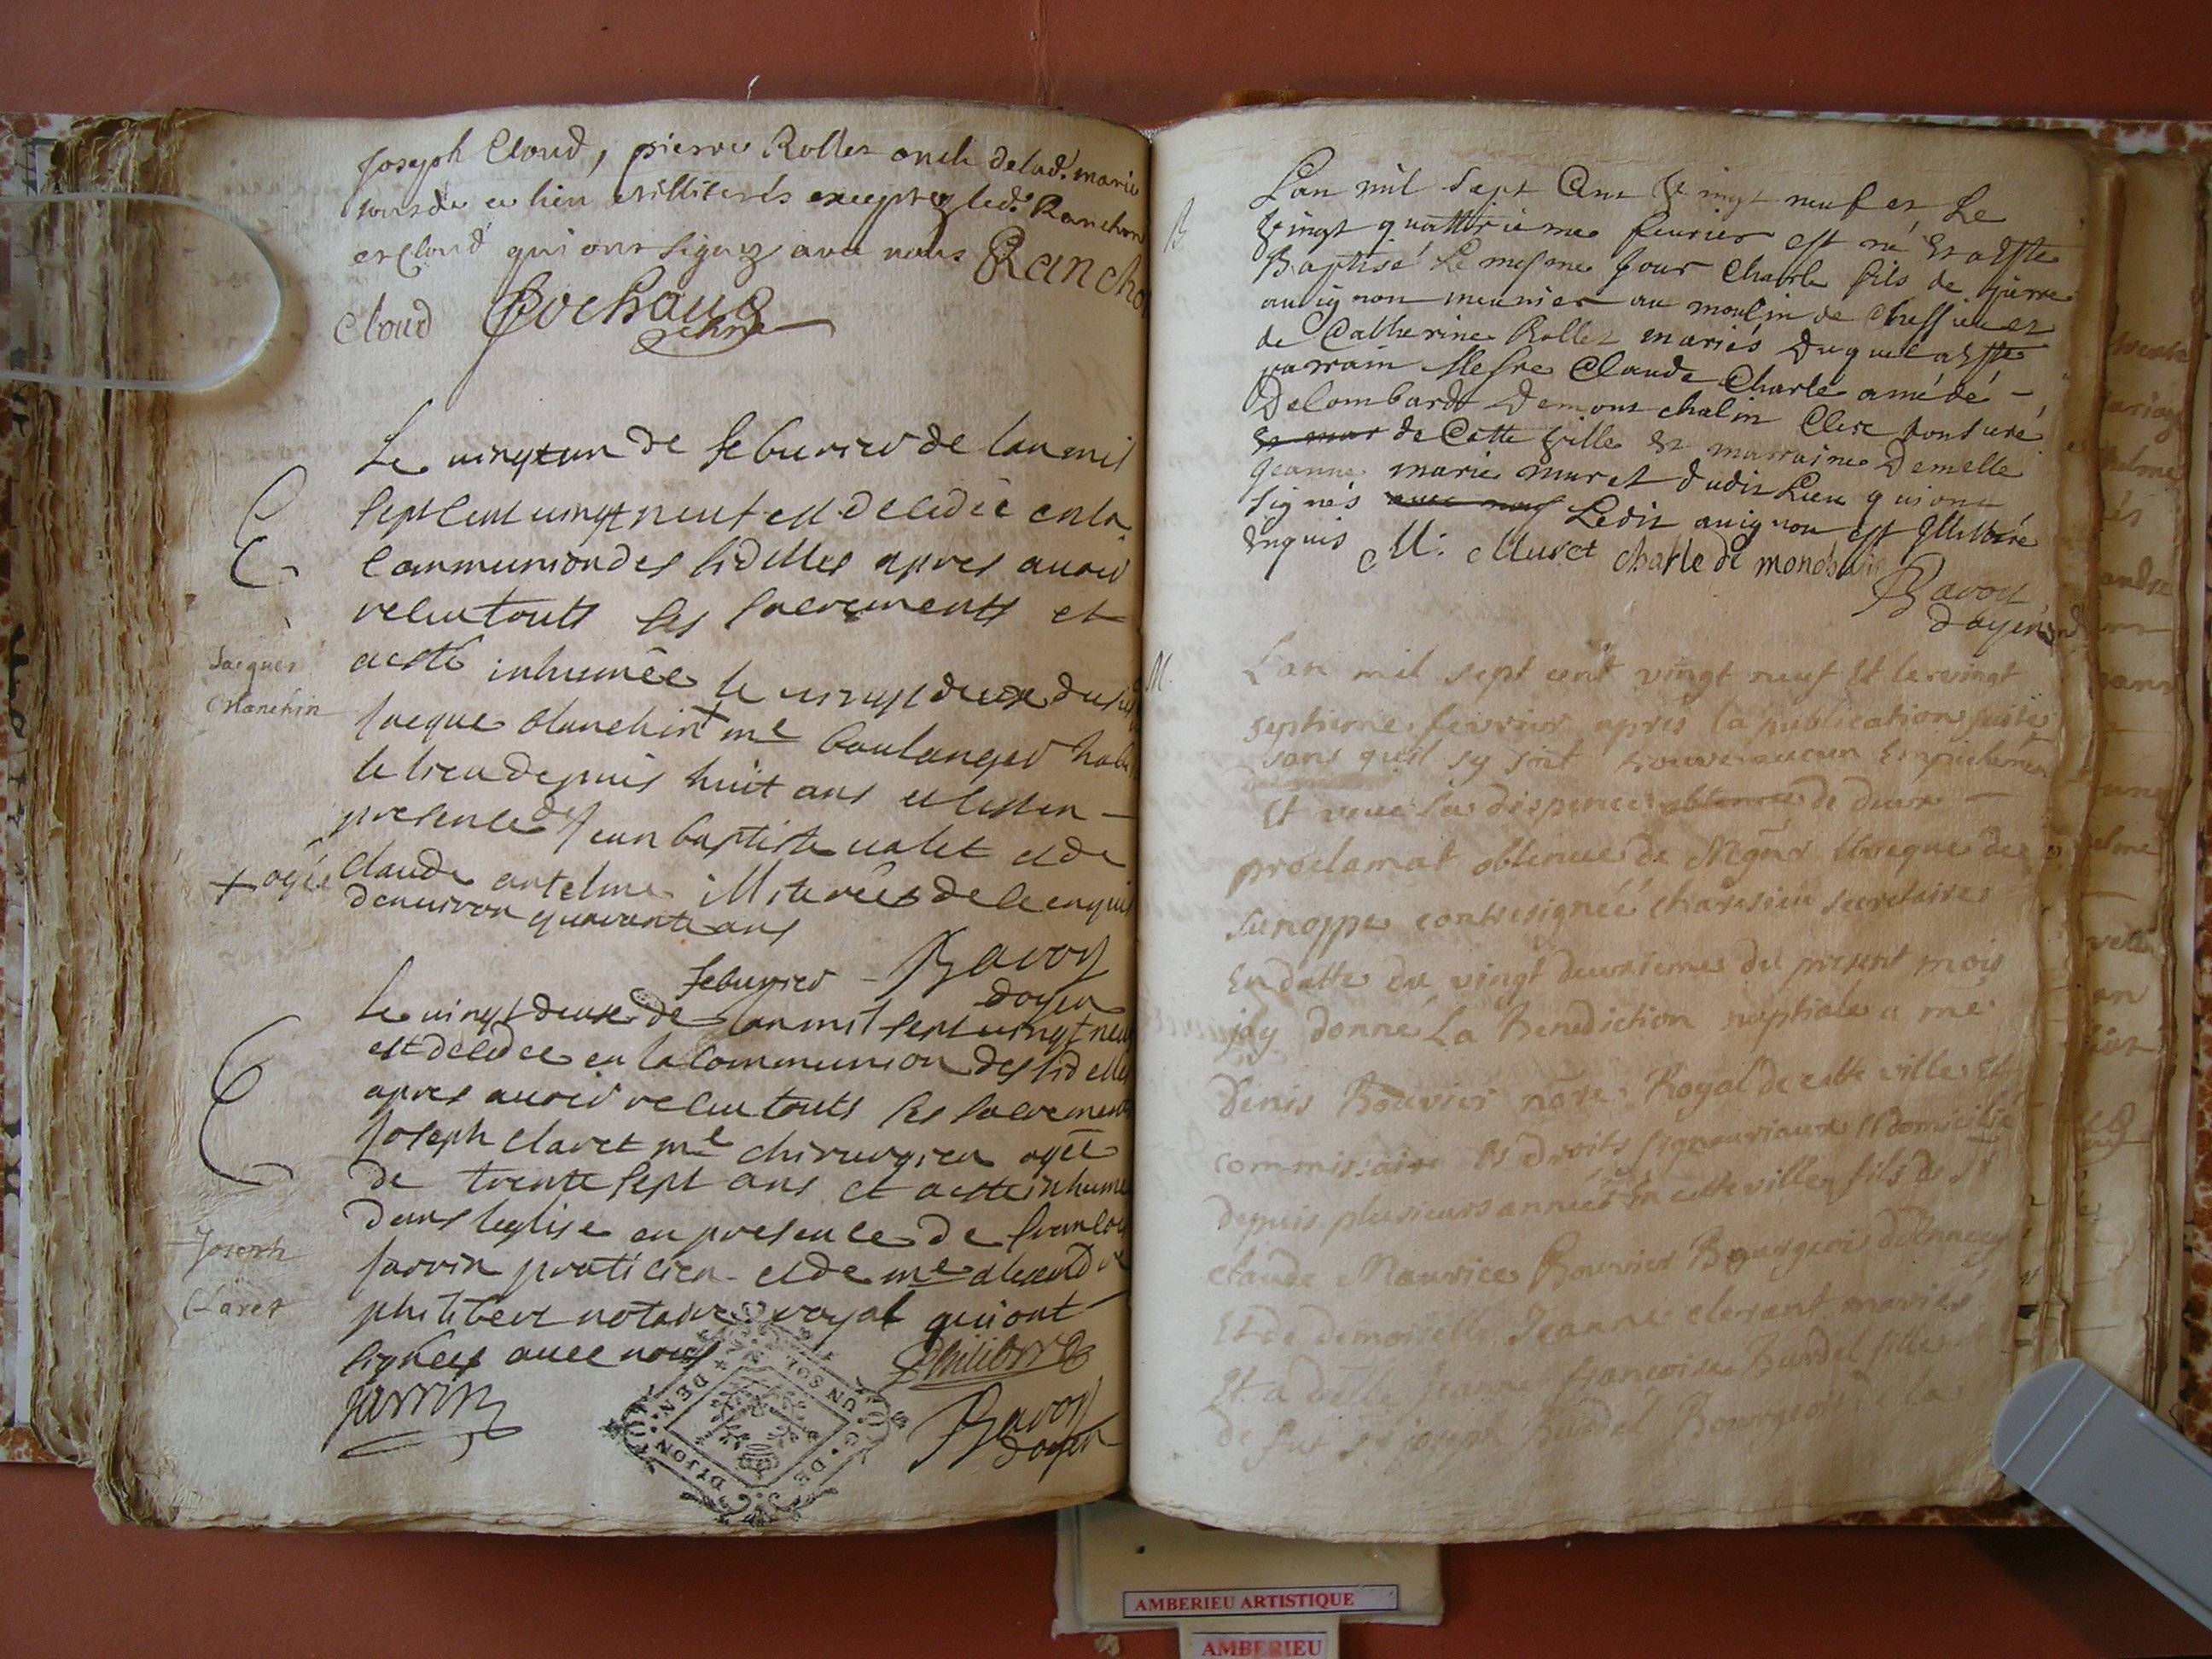 Joseph Cloud, pierre Rollet oncle de lad.e marie
tous de ce lieu et illiterés exceptez led.t Ranchon
et Cloud qui ont signez avec nous Rancho
Cloud Cochaud
Le vingt un de feburier de lan mil
sept cent vingt neuf est decedée en la
Communion des fidelles apres avoir
receu touts les sacrements et
a esté inhumée le vingt deux du
Jacque blanchin + me boulanger hab
le lieu depuis huit ans et ce en
presence de Jean baptiste valet et de
Claude antelme illiterées de ce enquis
+ agée
d'environ quarante ans
Ravoy
doyen
Jacques
blanchin
feburier
Le vingt deux de lan mil sept vingt neuf
est decedee en la Communion des fidelles
apres avoir receu touts les sacrements
Joseph Claret me chirurgien agée
de trente sept ans et a esté inhumé
dans leglise en presence de francois
Jarrin praticien et de me alexandre
philibert notaire royal qui ont
signées avec nous
Philibert
Jarrin
Ravoy
doyen
Joseph
Claret
UN SOL
DE
DIJON
DEN
B
Lan mil sept Cent Vingt neuf et Le
Vingt quattrieme feurier est né Et a Esté
Baptisé Le mesme Jour Charle fils de pierre
auignon meunier au moulin de et
de Catherine Rollet mariés Duquel a Esté
parrain Messre Claude Charle amédé
Delombard Demont chalin Clerc tonsuré
de Cette Ville Et marraine Demelle
Jeanne marie muret dudit Lieu qui ont
signés avec nous Ledit auignon est Illitéré
Enquis M: Muret charle de monchalin
Ravoy
doyen
M.
Lan mil sept cent vingt neuf Et le vingt
septieme fevrier apres la publication faite
sans quil sy soit trouvé aucun Empechement
Et veue la dispence obtenue de deux
proclamat obtenue de Mgnr Eveque de
Sinoppe contresignéé secretaire
En datte du vingt deuxieme du present mois
jay donné La Benediction nuptiale a me
Denis Bouvier nore Royal de cette ville Et
commissaire es droits signeuriaux Et domicilié
depuis plusieurs années en cette ville fils de Sr
claude Maurice Bouvier Bourgeois d'Annecy
Et de demoiselle Jeanne clerant mariés
Et a delle Jeanne francoise Burdel fille
de feu Sr joseph Burdel Bourgeois de la
AMBERIEU ARTISTIQUE
AMBERIEU